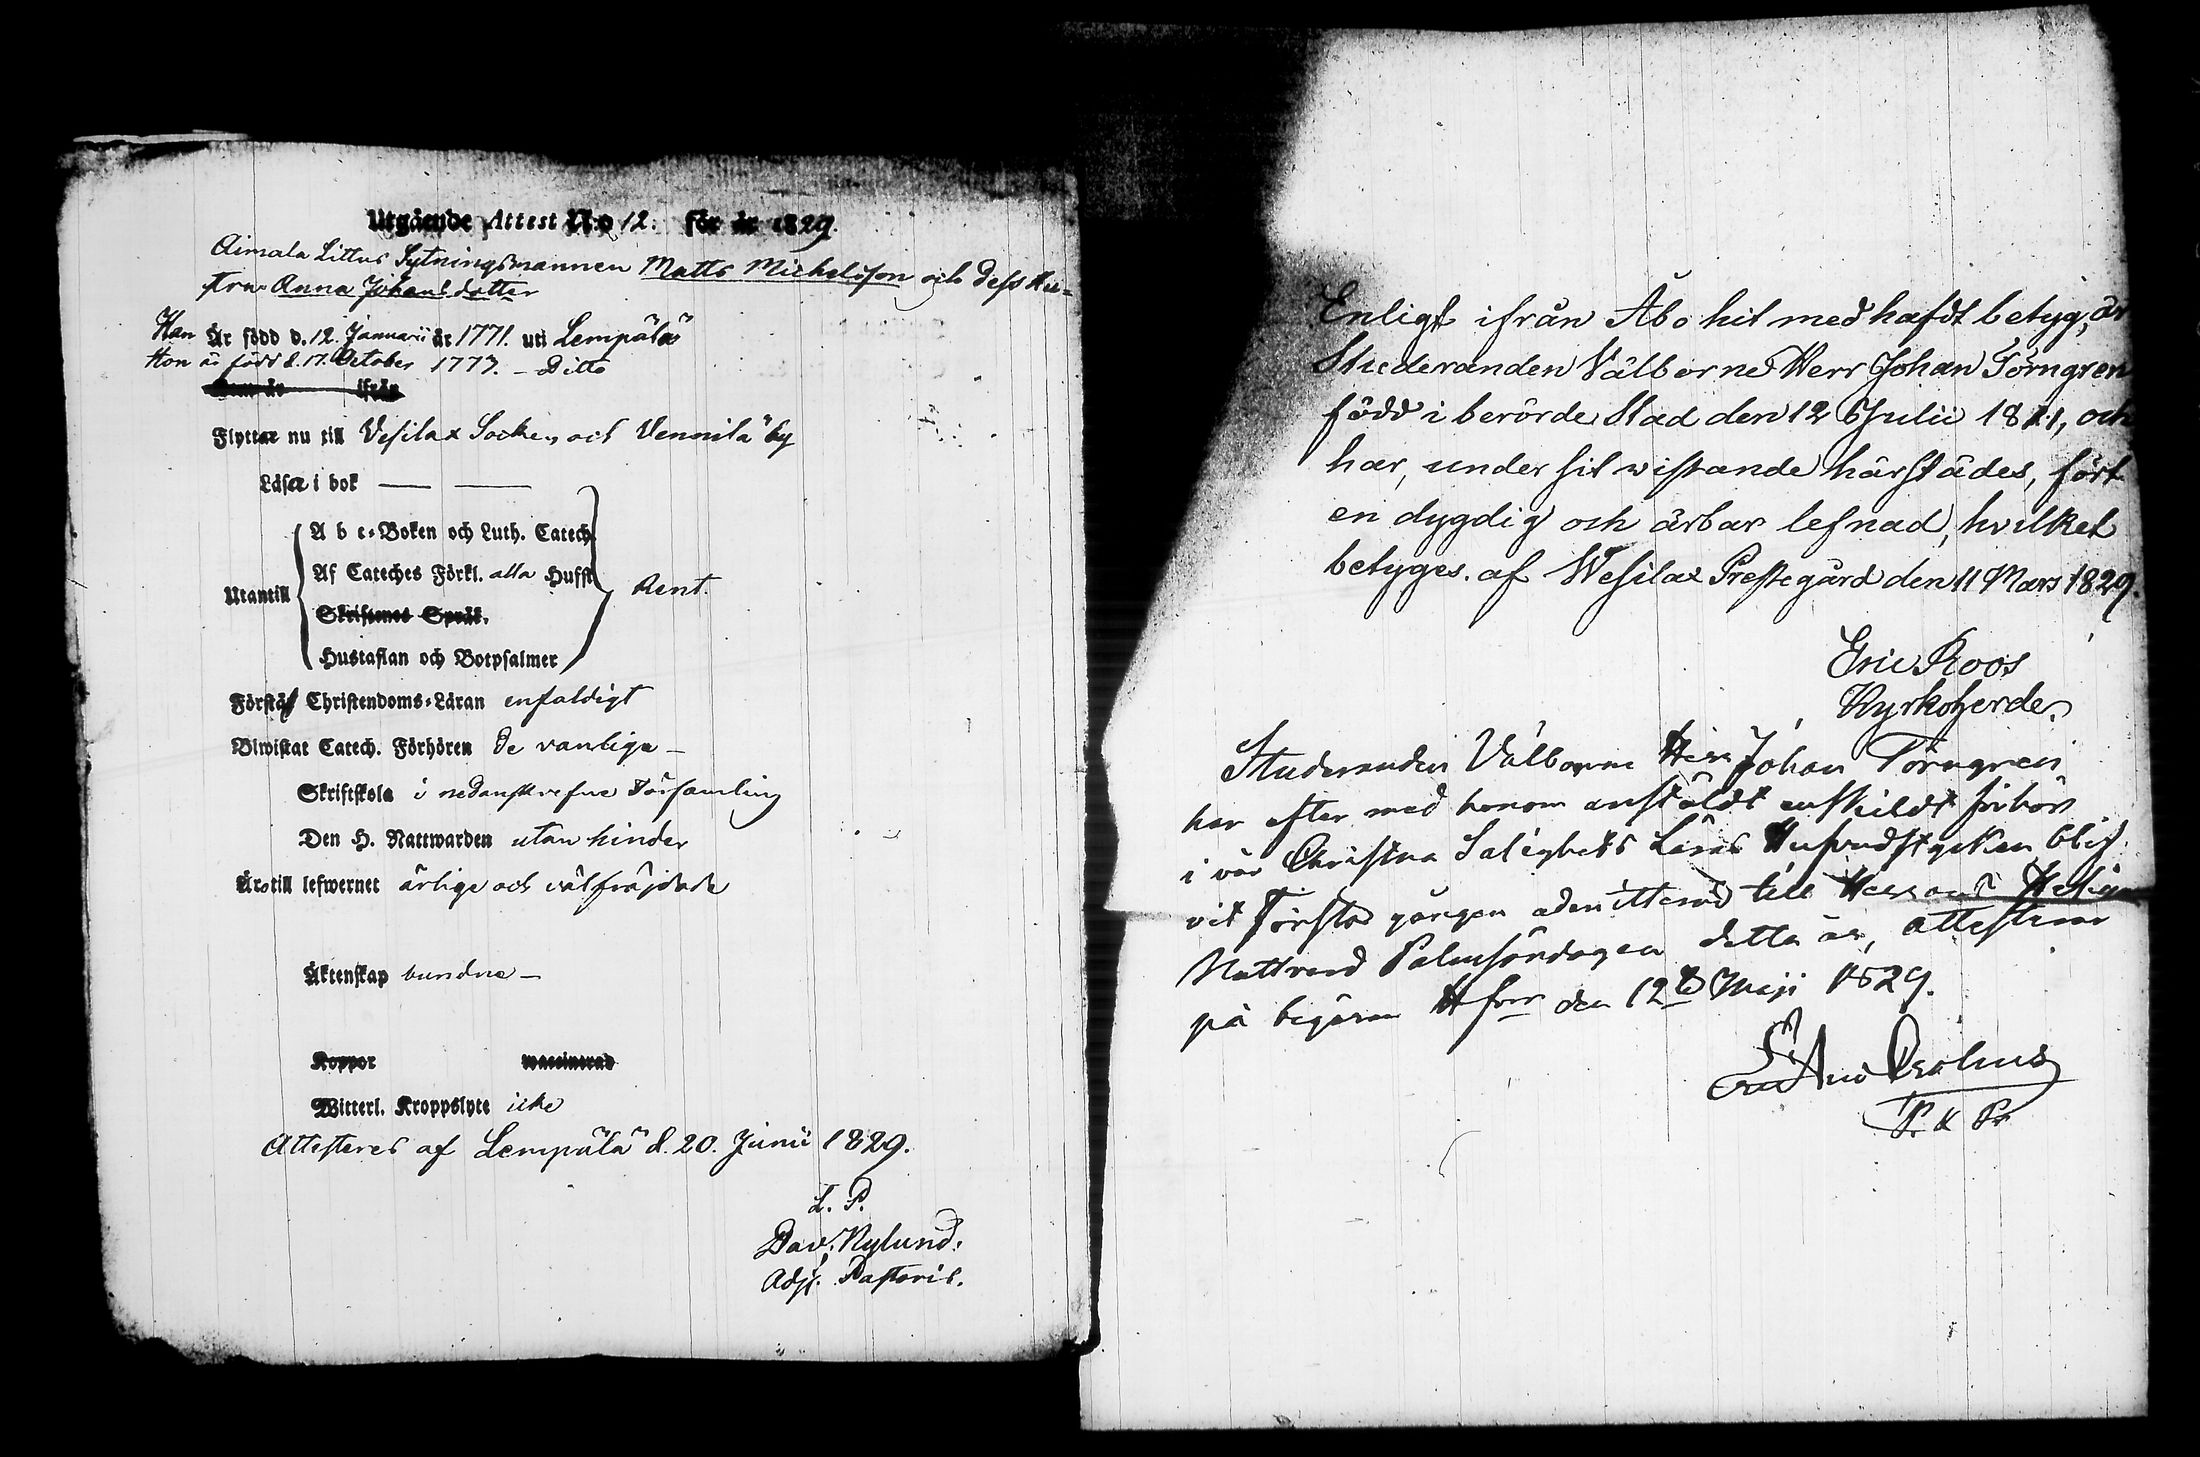 Utgående Attest N:o 12. för år 1829.
Aimala Littus Sytningsmannen Matts Michelsson och dess Hu-
stru Anna Johansdotter
Han Är född d. 12. Januarii år 1771. uti Lempälä
Hon är född d. 17. October 1773. - Ditto
Flyttar nu till Vesilax Socken och Vennilä by
Läsa i bok — —
A b c-Boken och Luth. Catech.
Af Cateches Förkl. alla Hufst.
Utantill Rent.
Skriftenes Språk.
Hustaflan och Botpsalmer
Förstå Christendoms-Läran enfaldigt
Biwistat Catech. Förhören de vanliga -
Skriftskola i nedanskrefne Församling
Den H. Nattwarden utan hinder
Äro till lefwernet ärlige och välfräjdade
Äktenskap bundne -
Koppor waccinerad
Witterl. Kroppslyte icke
Attesteres af Lempälä d. 20. Junii 1829.
L. P.
Dav. Nylund.
Adj. Pastoris.
Enligt ifrån Åbo hit med hafdt betyg, är
Studeranden Välborne Herr Johan Törngren
född i berörde Stad den 12 Julii 1811, och
har, under sit wistande härstädes, fört
en dygdig och ärbar lefnad, hvilket
betyges. af Wesilax Prestegård den 11 Mars 1829.
Eric Roos
Kyrkoherde.
Studeranden Välborne Herr Johan Törngren
har efter med honom anstäldt enskildt förhör
i vår Christna Salighets Läras Hufvudstycken blif-
vit Första gången admitterad till Herrans Heliga
Nattvard Palmsöndagen detta år, attesterar
på begäran H:fors den 12 Maji 1829.